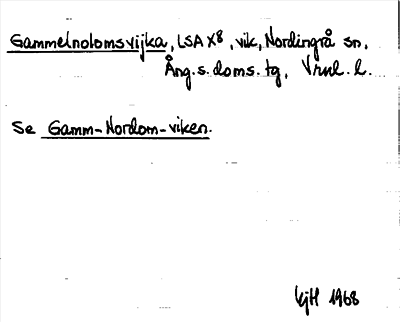 Gammelnolomsvijka, LSA X8, vik, Nordingrå sn,
Ång. s. doms. tg, Vrnl. l.
Se Gamm-Nordom-viken.
KjH 1968